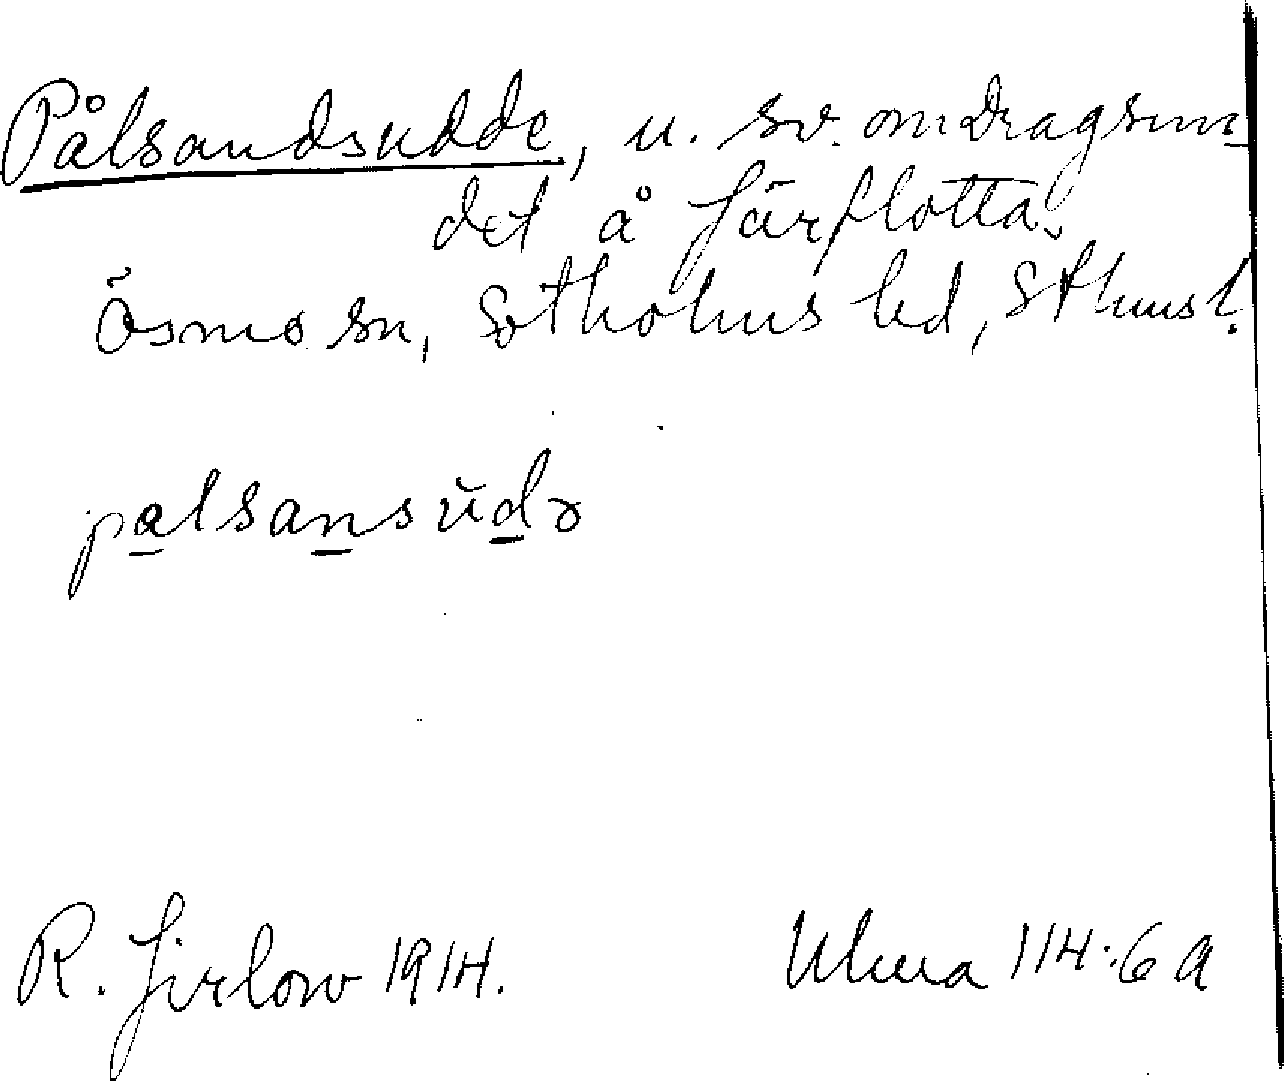 Pålsandsudde, u. sv. om Dragsun-
det å Järflotta.
Ösmo sn, Sotholms hd, Sthms l.
palsansŭdə
R. Jirlow 1914.
Ulma 114:6 a